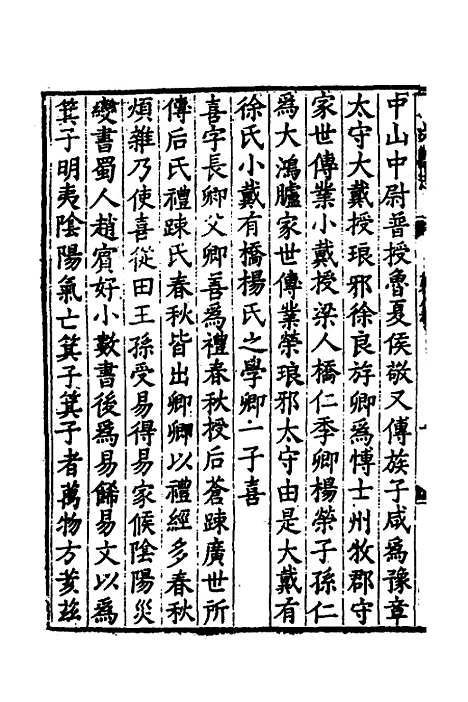 中山中尉普授魯夏侯敬又傳族子咸爲豫章
太守大戴授琅邪徐良斿卿爲博士州牧郡守
家世傳業小戴授梁人橋仁季卿楊榮子孫仁
爲大鴻臚家世傳業榮琅邪太守由是大戴有
徐氏小戴有橋楊氏之學卿一子喜
喜字長卿父卿善爲禮春秋授后蒼踈廣世所
傳后氏禮踈氏春秋皆出卿卿以禮經多春秋
煩雜乃使喜從田王孫受易得易家候陰陽災
變書蜀人趙賓好小數書後爲易餙易文以爲
箕子明夷陰陽氣亡箕子箕子者萬物方荄茲